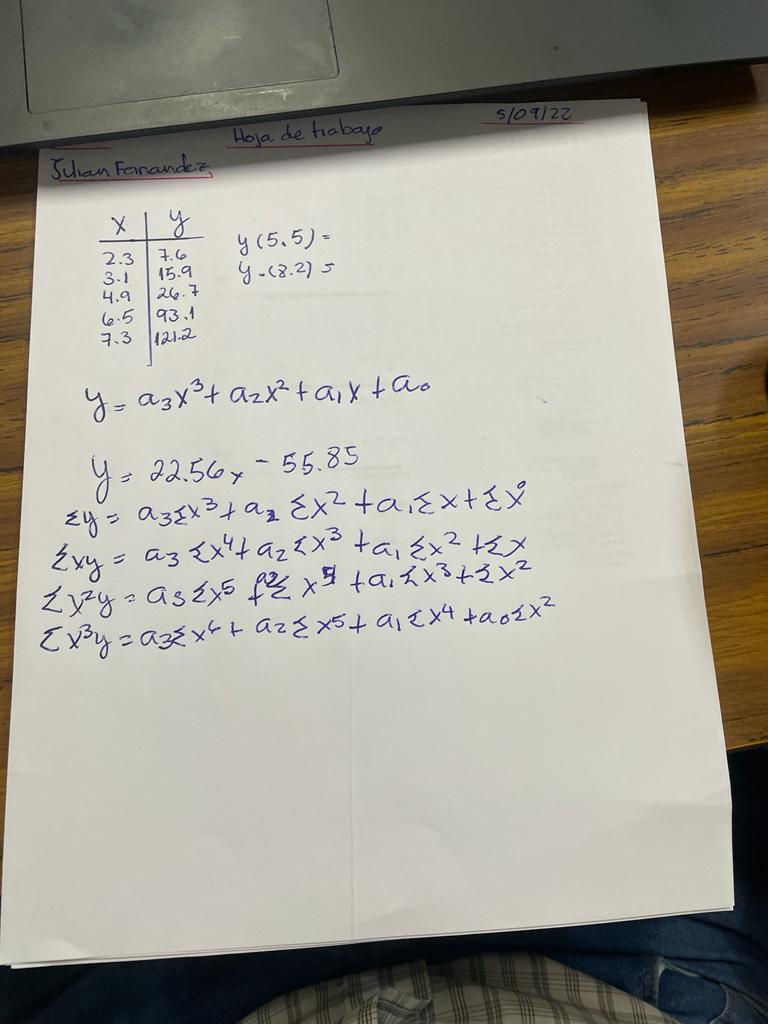 Hoja de trabajo 5/09/22
Julian Fernandez
x y
2.3 7.6 y(5.5) =
3.1 15.9 y(8.2) =
4.9 26.7
6.5 93.1
7.3 121.2
y = a₃x³ + a₂x² + a₁x + a₀
y = 22.56x - 55.85
Σy = a₃Σx³ + a₂ Σx² + a₁Σx + Σx⁰
Σxy = a₃ Σx⁴ + a₂ Σx³ + a₁Σx² + Σx
Σx²y = a₃Σx⁵ + Σ x + a₁Σx³ + Σx²
Σx³y = a₃Σx⁶ + a₂Σx⁵ + a₁Σx⁴ + a₀Σx²